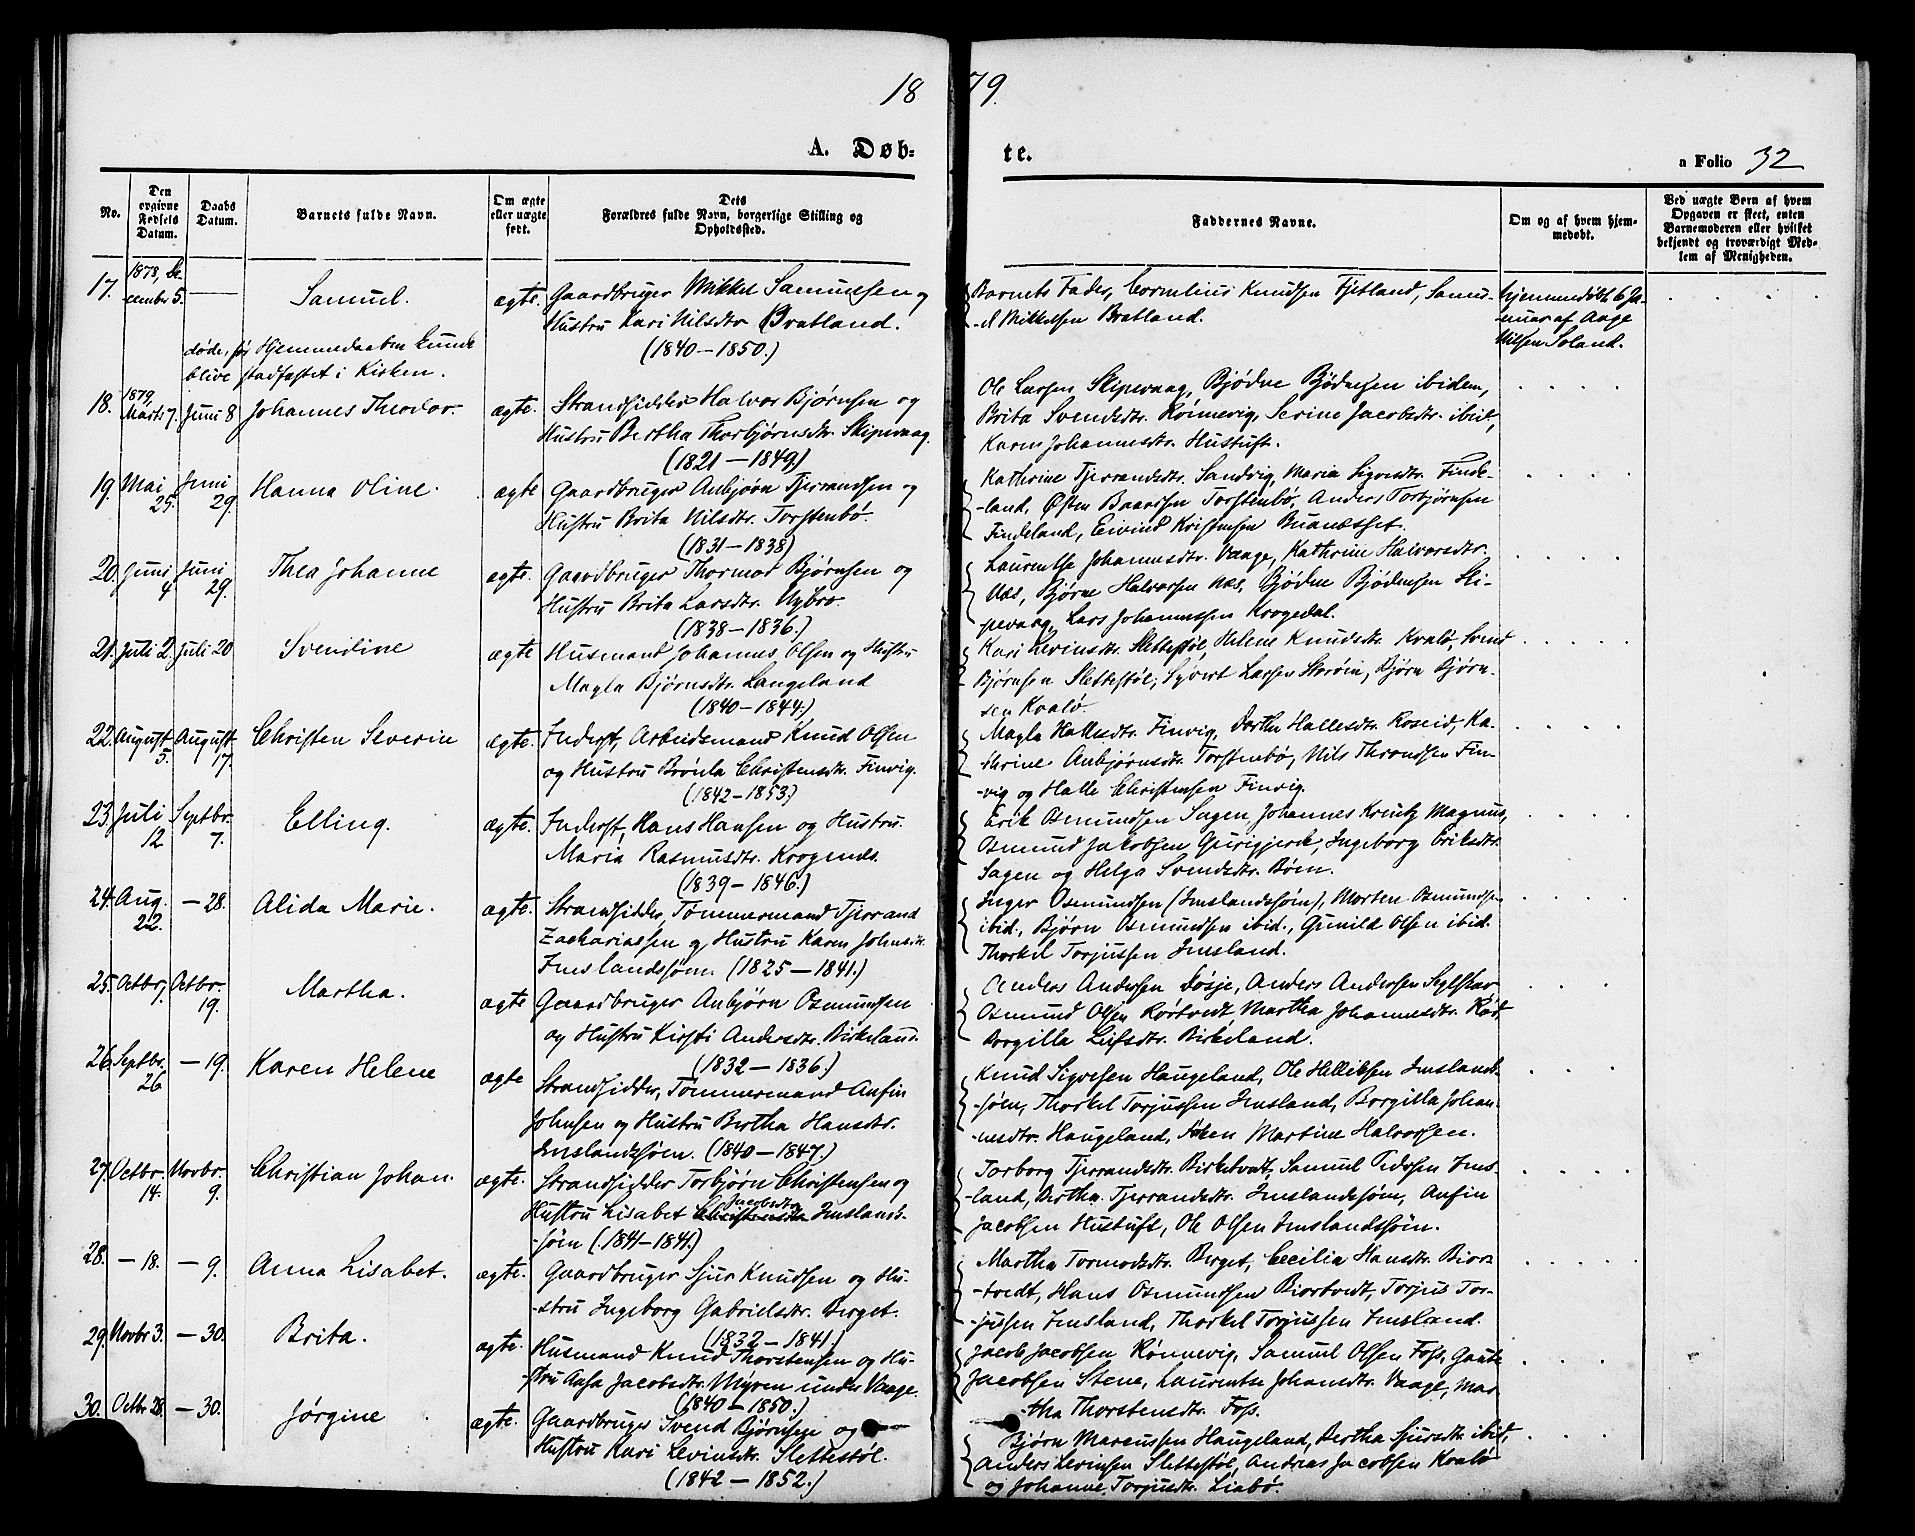 18 79.
A. Døb= te.
a Folio 32
No.
Den
opgivne
Fødsels
Datum.
Daabs
Datum.
Barnets fulde Navn.
Om ægte
eller uægte
født.
Dets
Forældres fulde Navn, borgerlige Stilling og
Opholdssted.
Faddernes Navne.
Om og af hvem hjem-
medøbt.
Ved uægte Børn af hvem
Opgaven er skeet, enten
Barnemoderen eller hvilket
bekjendt og troværdigt Med-
lem af Menigheden.
17. 1878, De-
cember 5. Samuel. ægte. Gaardbruger Mikkel Samuelsen og
Hustru Kari Nilsdtr Bratland.
(1840-1850.)
døde, før Hjemmedaaben kunde
blive stadfæstet i Kirken.
Barnets Fader, Cornelius Knudsen Fjetland, Samu-
-el Mikkelsen Bratland.
hjemmedøbt 6 Ja-
nuar af Aage
Nilsen Soland.
18. 1879,
Marts 7. Juni 8 Johannes Theodor. ægte. Strandsidder Halvor Bjørnsen og
Hustru Bertha Thorbjørnsdtr. Skipevaag.
(1821-1849.)
Ole Larsen Skipevaag, Bjødne Bjødnesen ibidem,
Brita Svendsdtr. Rønnevig, Serine Jacobsdtr. ibid,
Karen Johannesdtr. Hustuft.
19. Mai
25. Juni
29. Hanna Oline. ægte Gaardbruger Anbjørn Tjerandsen og
Hustru Brita Nilsdtr. Torstenbø.
(1831-1838)
Kathrine Tjerrandsdtr. Sandvig, Maria Sigvesdtr. Finde-
-land, Østen Baardsen Torstenbø, Anders Torbjørnsen
Findeland, Eivind Kristensen Buanæsset.
20. Juni
4. Juni
29. Thea Johanne ægte. Gaardbruger Thormod Bjørnsen og
Hustru Brita Larsdtr. Nybro.
(1838-1836.)
Laurentse Johannesdtr. Vaage, Kathrine Halvorsdtr.
Næs, Bjørne Halvorsen Næs, Bjødne Bjødnesen Ski-
pevaag, Lars Johannessen Krogedal.
21. Juli 2. Juli 20 Svendine ægte Husmand Johannes Olsen og Hustru
Magla Bjørnsdtr. Langeland
(1840-1844.)
Kari Levinsdtr. Slettestøl, Helene Knudsdtr. Kvalø, Svend
Bjørnsen Slettestøl, Syvert Larsen Skerøin, Bjørn Bjørn-
sen Kvalø.
22. August
5. August
17. Christen Severin ægte. Inderst, Arbeidsmand Knud Olsen
og Hustru Brønla Christensdtr. Finvig.
(1842-1853.)
Magla Hallesdtr. Finvig, Dorthe Hallesdtr. Roseid, Ka-
thrine Anbjørnsdtr. Torstenbø, Nils Throndsen Fin-
-vig og Halle Christensen Finvig.
23. Juli
12 Septbr.
7. Elling. ægte. Inderst, Hans Hansen og Hustru.
Maria Rasmusdtr. Krogenæs.
(1839-1846.)
Erik Osmundsen Sagen, Johannes Kreutz Magnus,
Osmund Jakobsen Gurigjerde, Ingeborg Eriksdtr.
Sagen og Helga Svendsdtr. Bøen.
24. Aug.
22. - 28. Alida Marie. ægte. Strandsidder, Tømmermand Tjerrand
Zachariassen og Hustru Karen Johnsdtr.
Imslandssøen. (1825-1841.)
Inger Osmundsen (Imslandssøen), Morten Osmundsen
ibid., Bjørn Osmundsen ibid., Gunild Olsen ibid.
Thorkel Torjussen Imsland.
25. Octbr.
7. Octbr.
19. Martha. ægte Gaardbruger Anbjørn Osmundsen
og Hustru Kirsti Andersdtr. Birkeland.
(1832-1836.)
Anders Andersen Døsje, Anders Andersen
Osmund Olsen Rørtvedt, Martha Johannesdtr. Rød
Borgilla Leifsdtr. Birkeland.
26. Septbr.
26. - 19. Karen Helene ægte Strandsidder, Tømmermand Anfin
Johnsen og Hustru Bertha Hansdtr.
Imslandssøen. (1840-1847.)
Knud Sigvesen Haugeland, Ole Helliksen Imslands-
-søen, Thorkel Torjussen Imsland, Borgilla Johan-
-nesdtr. Haugeland, Martine Halvorsen.
27. Octbr.
14. Novbr.
9. Christian Johan. ægte. Strandsidder Torbjørn Christensen og
Hustru Lisabet Christensdtr Jacobsdtr Imslands-
-søen (1841-1841.)
Torborg Tjerrandsdtr. Birketvedt, Samuel Pedersen Ims-
-land, Bertha Tjerrandsdtr. Imslandssøen, Anfin
Jacobsen Hustuft, Ole Olsen Imslandssøen.
28. - 18. - 9. Anna Lisabet. ægte. Gaardbruger Sjur Knudsen og Hu-
-stru Ingeborg Gabrielsdtr. Berget.
(1832-1841.)
Martha Tormodsdtr. Berget, Cecilia Hansdtr. Bior-
-tvedt, Hans Osmundsen Biortvedt, Torjus Tor-
-jussen Imsland, Thorkel Torjussen Imsland.
29. Novbr 3. - 30. Brita. ægte. Husmand Knud Thorstensen og Hu-
-stru Aasa Jacobsdtr. Myren under Vaage.
(1840-1850.)
Jacob Jacobsen Rønnevig, Samuel Olsen Foss, Gaute
Jacobsen Stene, Laurentse Johansdtr. Vaage, Mar-
tha Thorstensdtr. Foss.
30. Octbr 28. - 30. Jørgine ægte. Gaardbruger Svend Bjørnsen og
Hustru Kari Levinsdtr. Slettestøl.
(1842-1852.)
Bjørn Marcussen Haugeland, Bertha Sjursdtr. ibid,
Anders Levinsen Slettestøl, Andreas Jacobsen Kvalø
og Johanne Torjusdtr. Liabø.